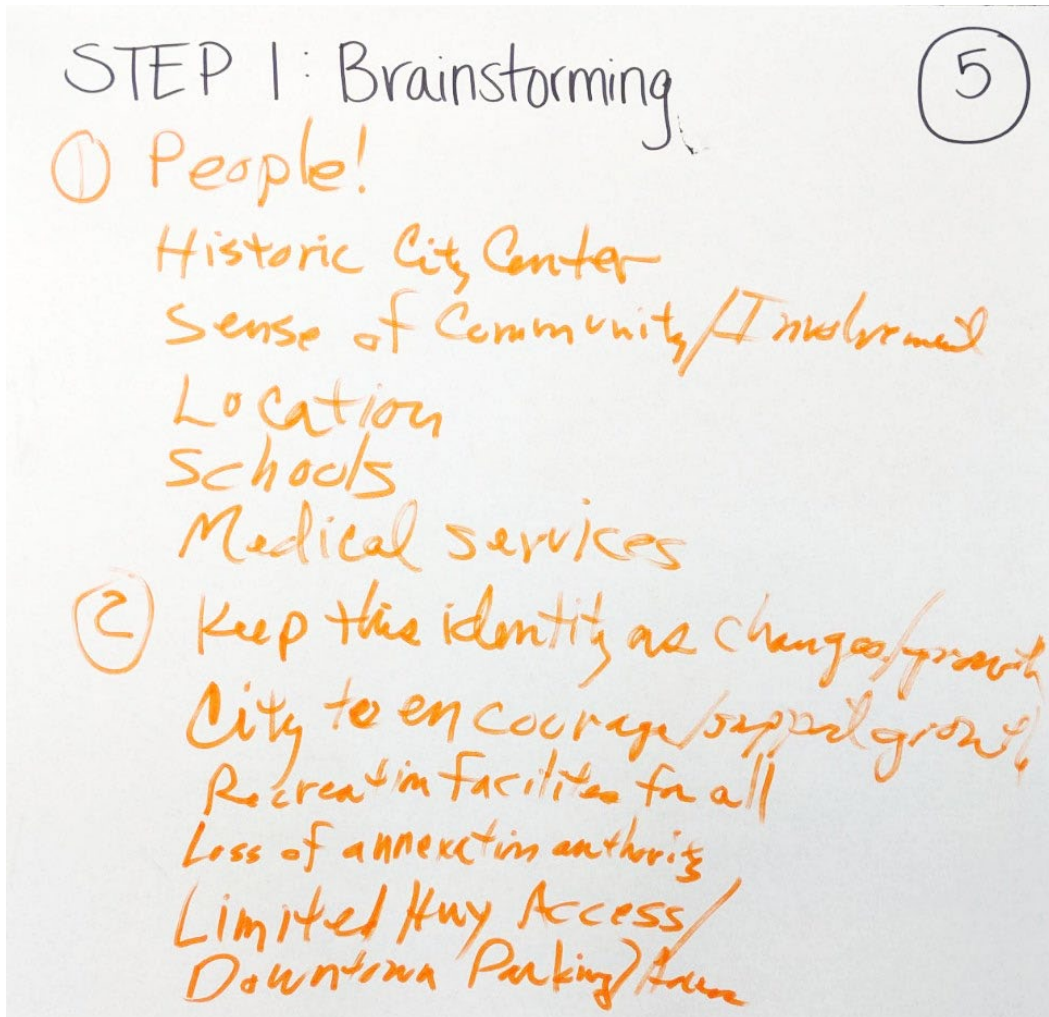 STEP 1: Brainstorming 5
① People!
Historic City Center
Sense of Community/Involvement
Location
Schools
Medical services
② Keep this identity as changes/growth
City to encourage/support growth
Recreation facilities for all
Loss of annexation authority
Limited Hwy Access/
Downtown Parking/